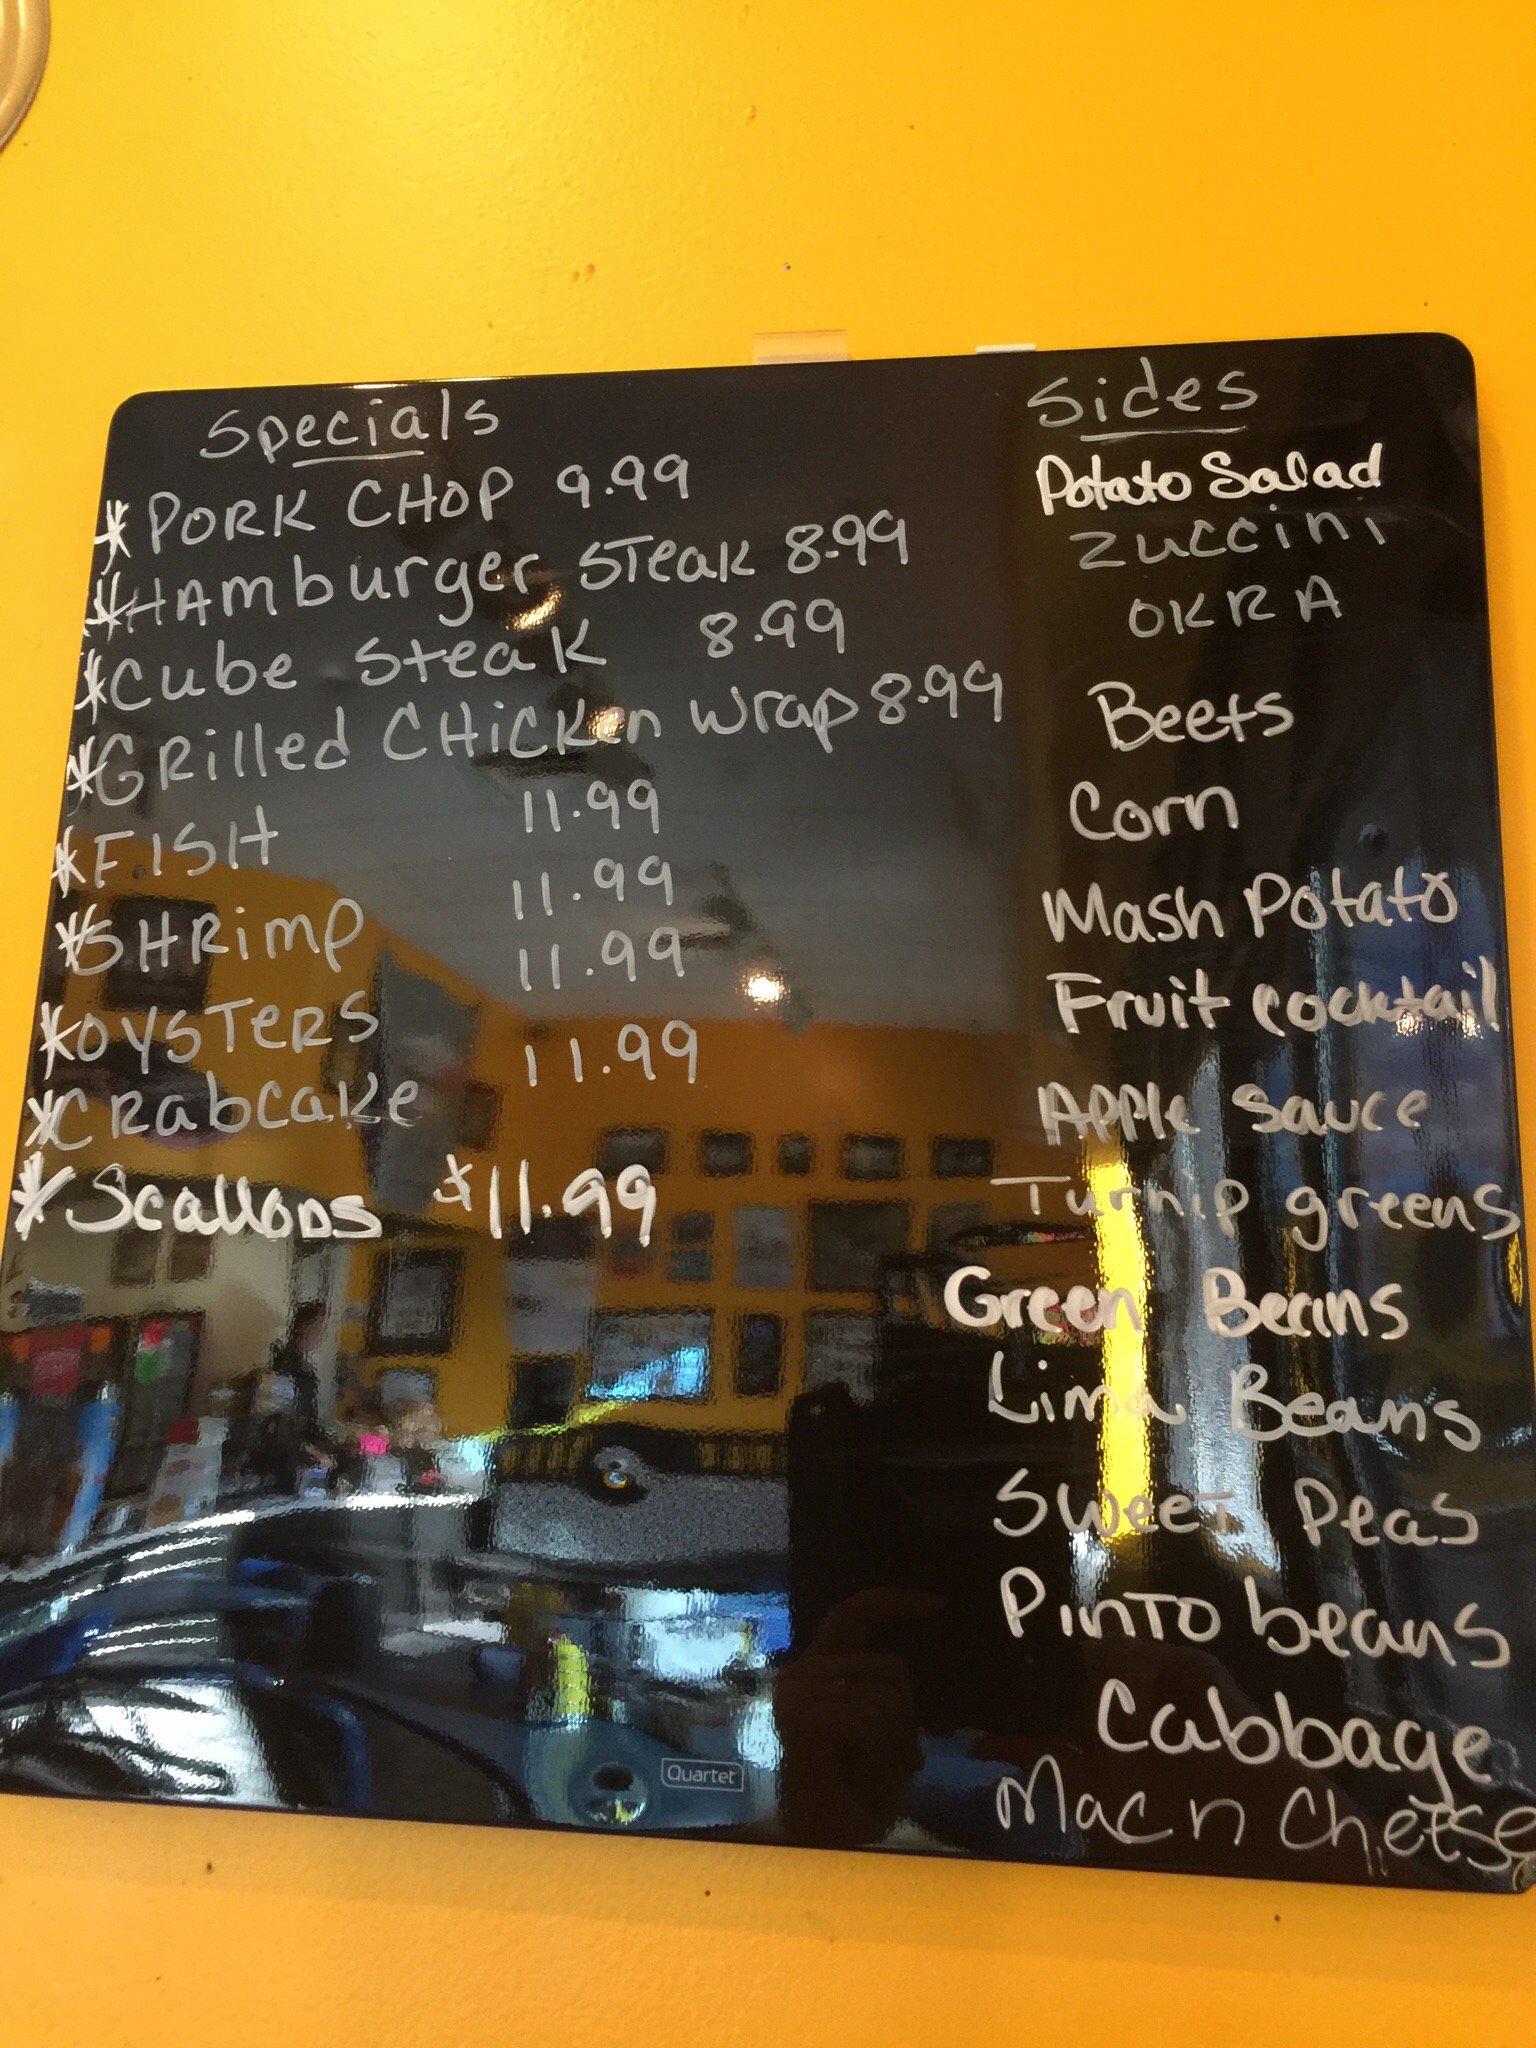 Specials
*PORK CHOP 9.99
*HAmburger STeak 8.99
*Cube Steak 8.99
*GRilled CHiCKen Wrap 8.99
*FISH 11.99
*SHRimp 11.99
*OYSTeRS 11.99
*CRabcake 11.99
*Scallops $11.99
Sides
Potato Salad
Zuccini
OKRA
Beets
Corn
Mash Potato
Fruit cocktail
Apple Sauce
Turnip greens
Green Beans
Lima Beans
Sweet Peas
Pinto beans
Cabbage
Mac n Cheese
Quartet